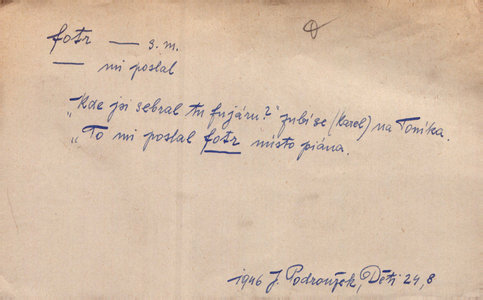 fotr — s. m.
— mi poslal
„Kde jsi sebral tu fujaru?" zubí se (Karel) na Toníka.
„To mi poslal fotr místo piána.
1946 J. Podroužek, Děti 24, 8